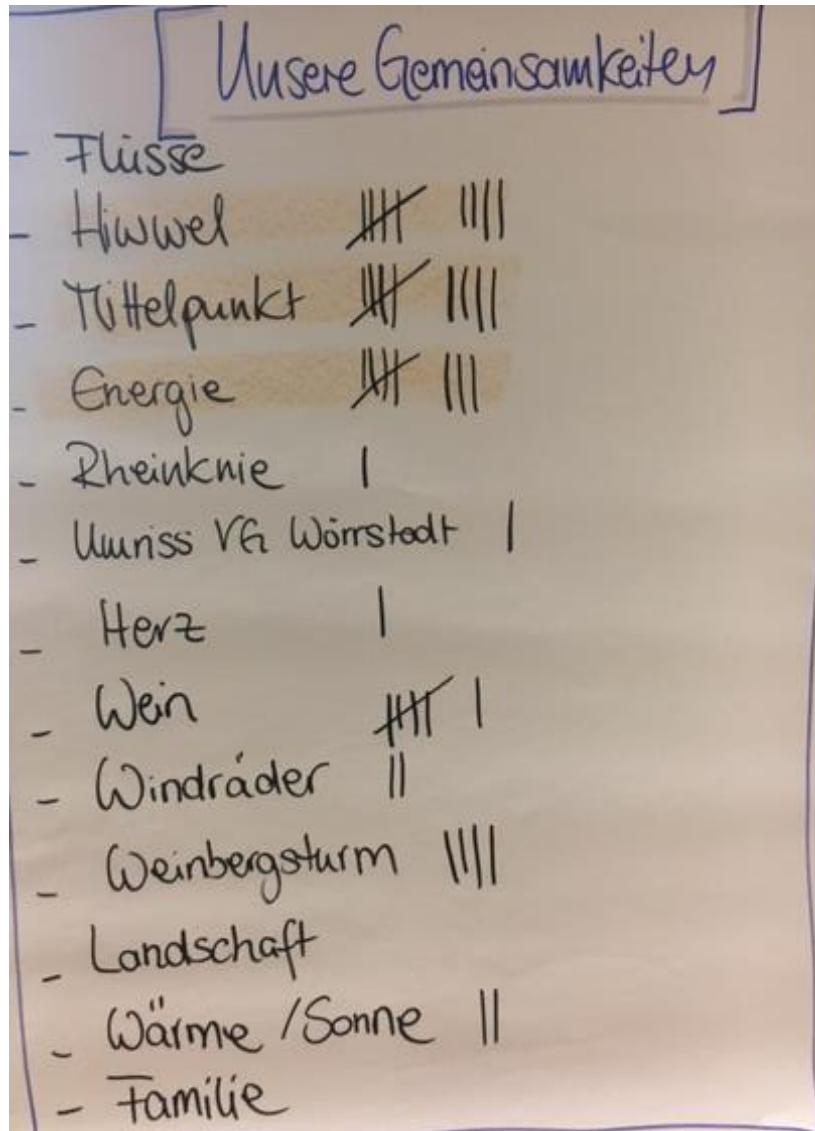 [Unsere Gemeinsamkeiten]
- Flüsse
- Hiwwel |||| ||||
- Mittelpunkt |||| ||||
- Energie |||| |||
- Rheinknie |
- Umriss VG Wörrstadt |
- Herz |
- Wein |||| |
- Windräder ||
- Weinbergsturm ||||
- Landschaft
- Wärme / Sonne ||
- Familie